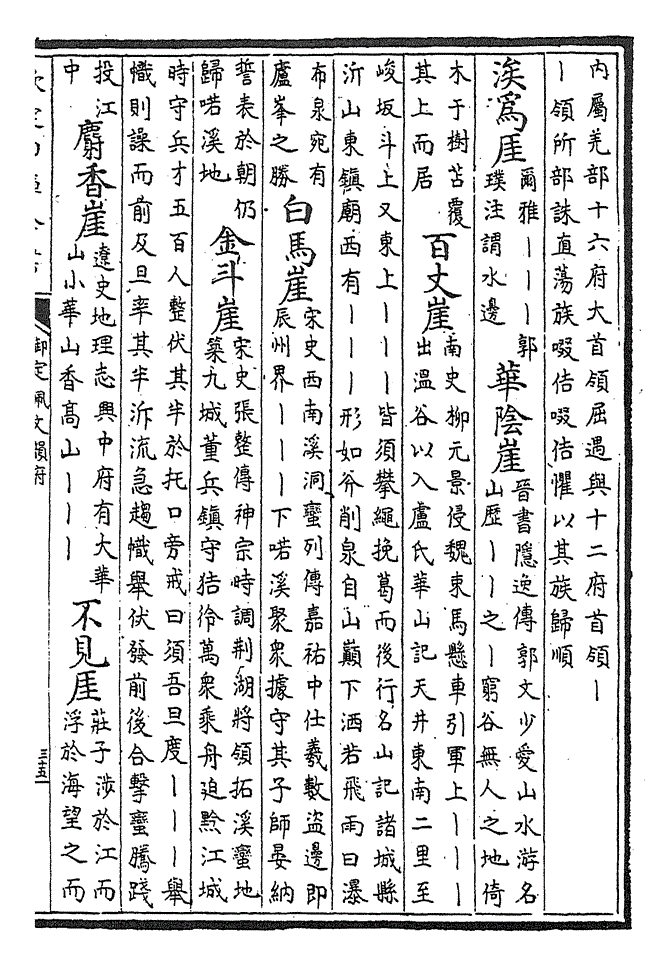 内屬羌部十六府大首領屈遇與十二府首領丨
丨領所部誅直蕩族啜佶啜佶懼以其族歸順
涘爲厓
爾雅丨丨丨郭
璞注謂水邊
華陰崖
晉書隱逸傳郭文少愛山水游名
山歷丨丨之丨窮谷無人之地倚
木于樹苫覆
其上而居
百丈崖
南史柳元景侵魏束馬懸車引軍上丨丨丨
出溫谷以入盧氏華山記天井東南二里至
峻坂斗上又東上丨丨丨皆須攀繩挽葛而後行名山記諸城縣
沂山東鎮廟西有丨丨丨形如斧削泉自山巔下洒若飛雨曰瀑
布泉宛有
廬峯之勝
白馬崖
宋史西南溪洞蠻列傳嘉祐中仕羲數盜邊即
辰州界丨丨丨下喏溪聚衆據守其子師晏納
誓表於朝仍
歸喏溪地
金斗崖
宋史張整傳神宗時調荆湖將領拓溪蠻地
築九城董兵鎮守狤狑萬衆乘舟迫黔江城
時守兵才五百人整伏其半於托口旁戒曰須吾旦度丨丨丨舉
幟則譟而前及旦率其半泝流急趨幟舉伏發前後合擊蠻騰踐
投江
中
麝香崖
遼史地理志興中府有大華
山小華山香高山丨丨丨
不見厓
莊子涉於江而
浮於海望之而
御定佩文韻府
三五